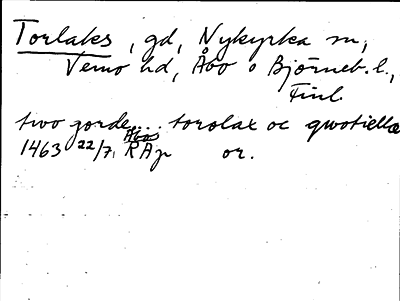 Torlaks, gd, Nykyrka sn,
Vemo hd, Åbo o Björneb. l.,
Finl.
two gorde... torolax oc gwotiella
Åbo
1463 22/7. RAp or.